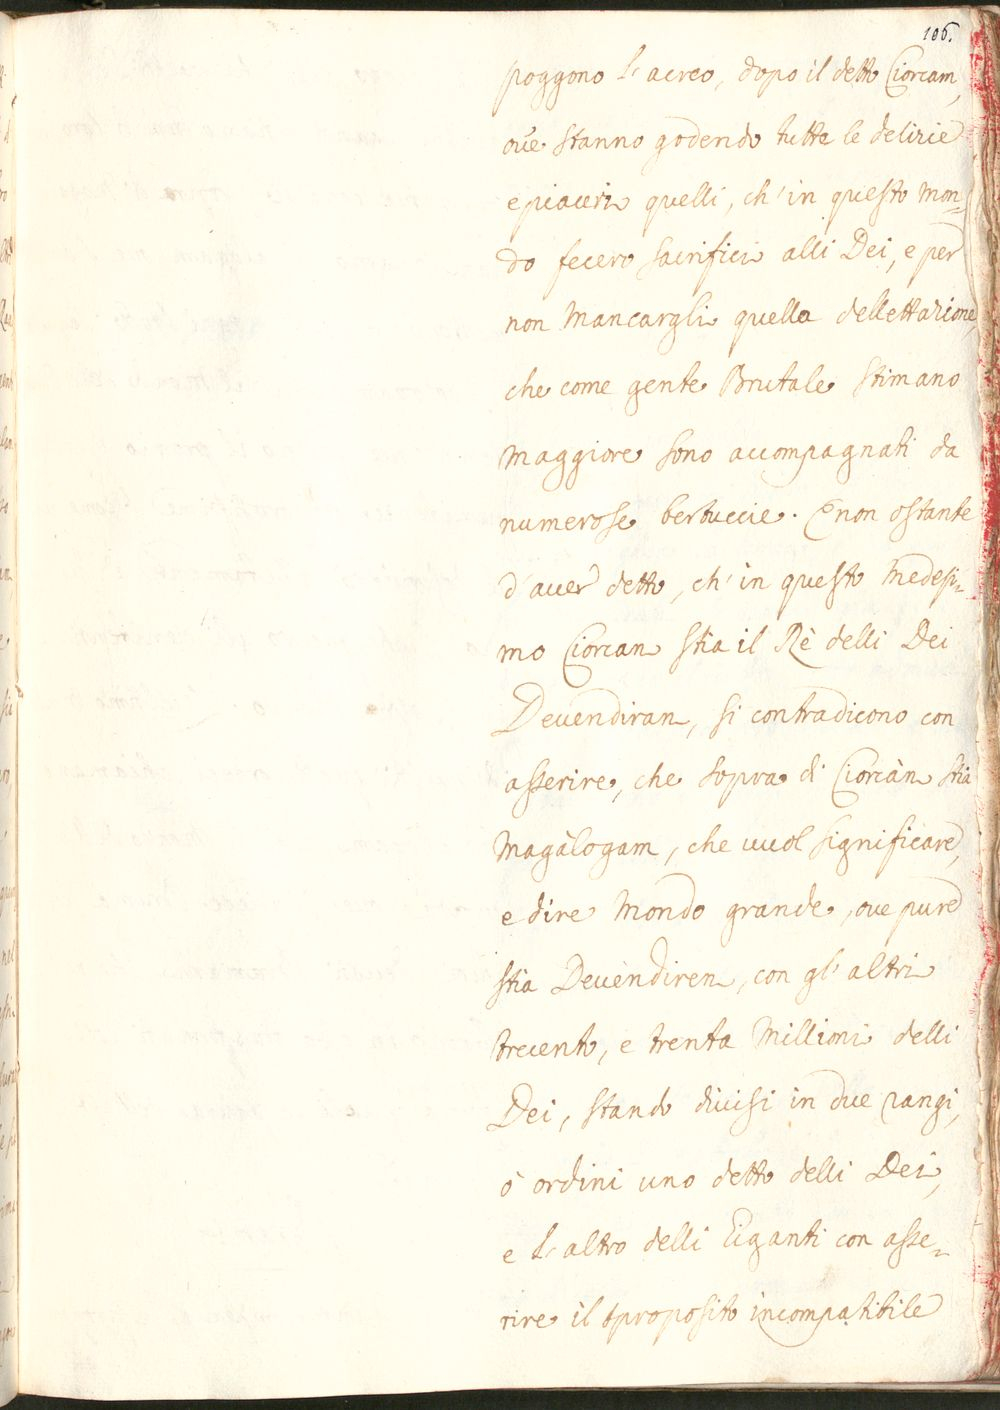 106.
poggono l'aereo, dopo il detto Ciorcam,
oue stanno godendo tutte le delizie
e piaceri quelli, ch'in questo Mon-
do fecero sacrificii alli Dei, e per
non Mancargli quella dellettazione,
che come gente Brutale stimano
maggiore sono accompagnati da
numerose bertuccie. E non ostante
d'auer detto, ch'in questo medesi-
mo Ciorcan stia il Rè delli Dei
Deuendiran, si contradicono con
asserire, che sopra di Ciorcàn stia
Magàlogam, che uuol significare,
e dire Mondo grande, oue pure
stia Deuèndiren, con gl'altri
trecento, e trenta Millioni delli
Dei, stando diuisi in due rangi,
ò ordini uno detto delli Dei,
e l'altro delli Giganti con asse-
rire il sproposito incompatibile